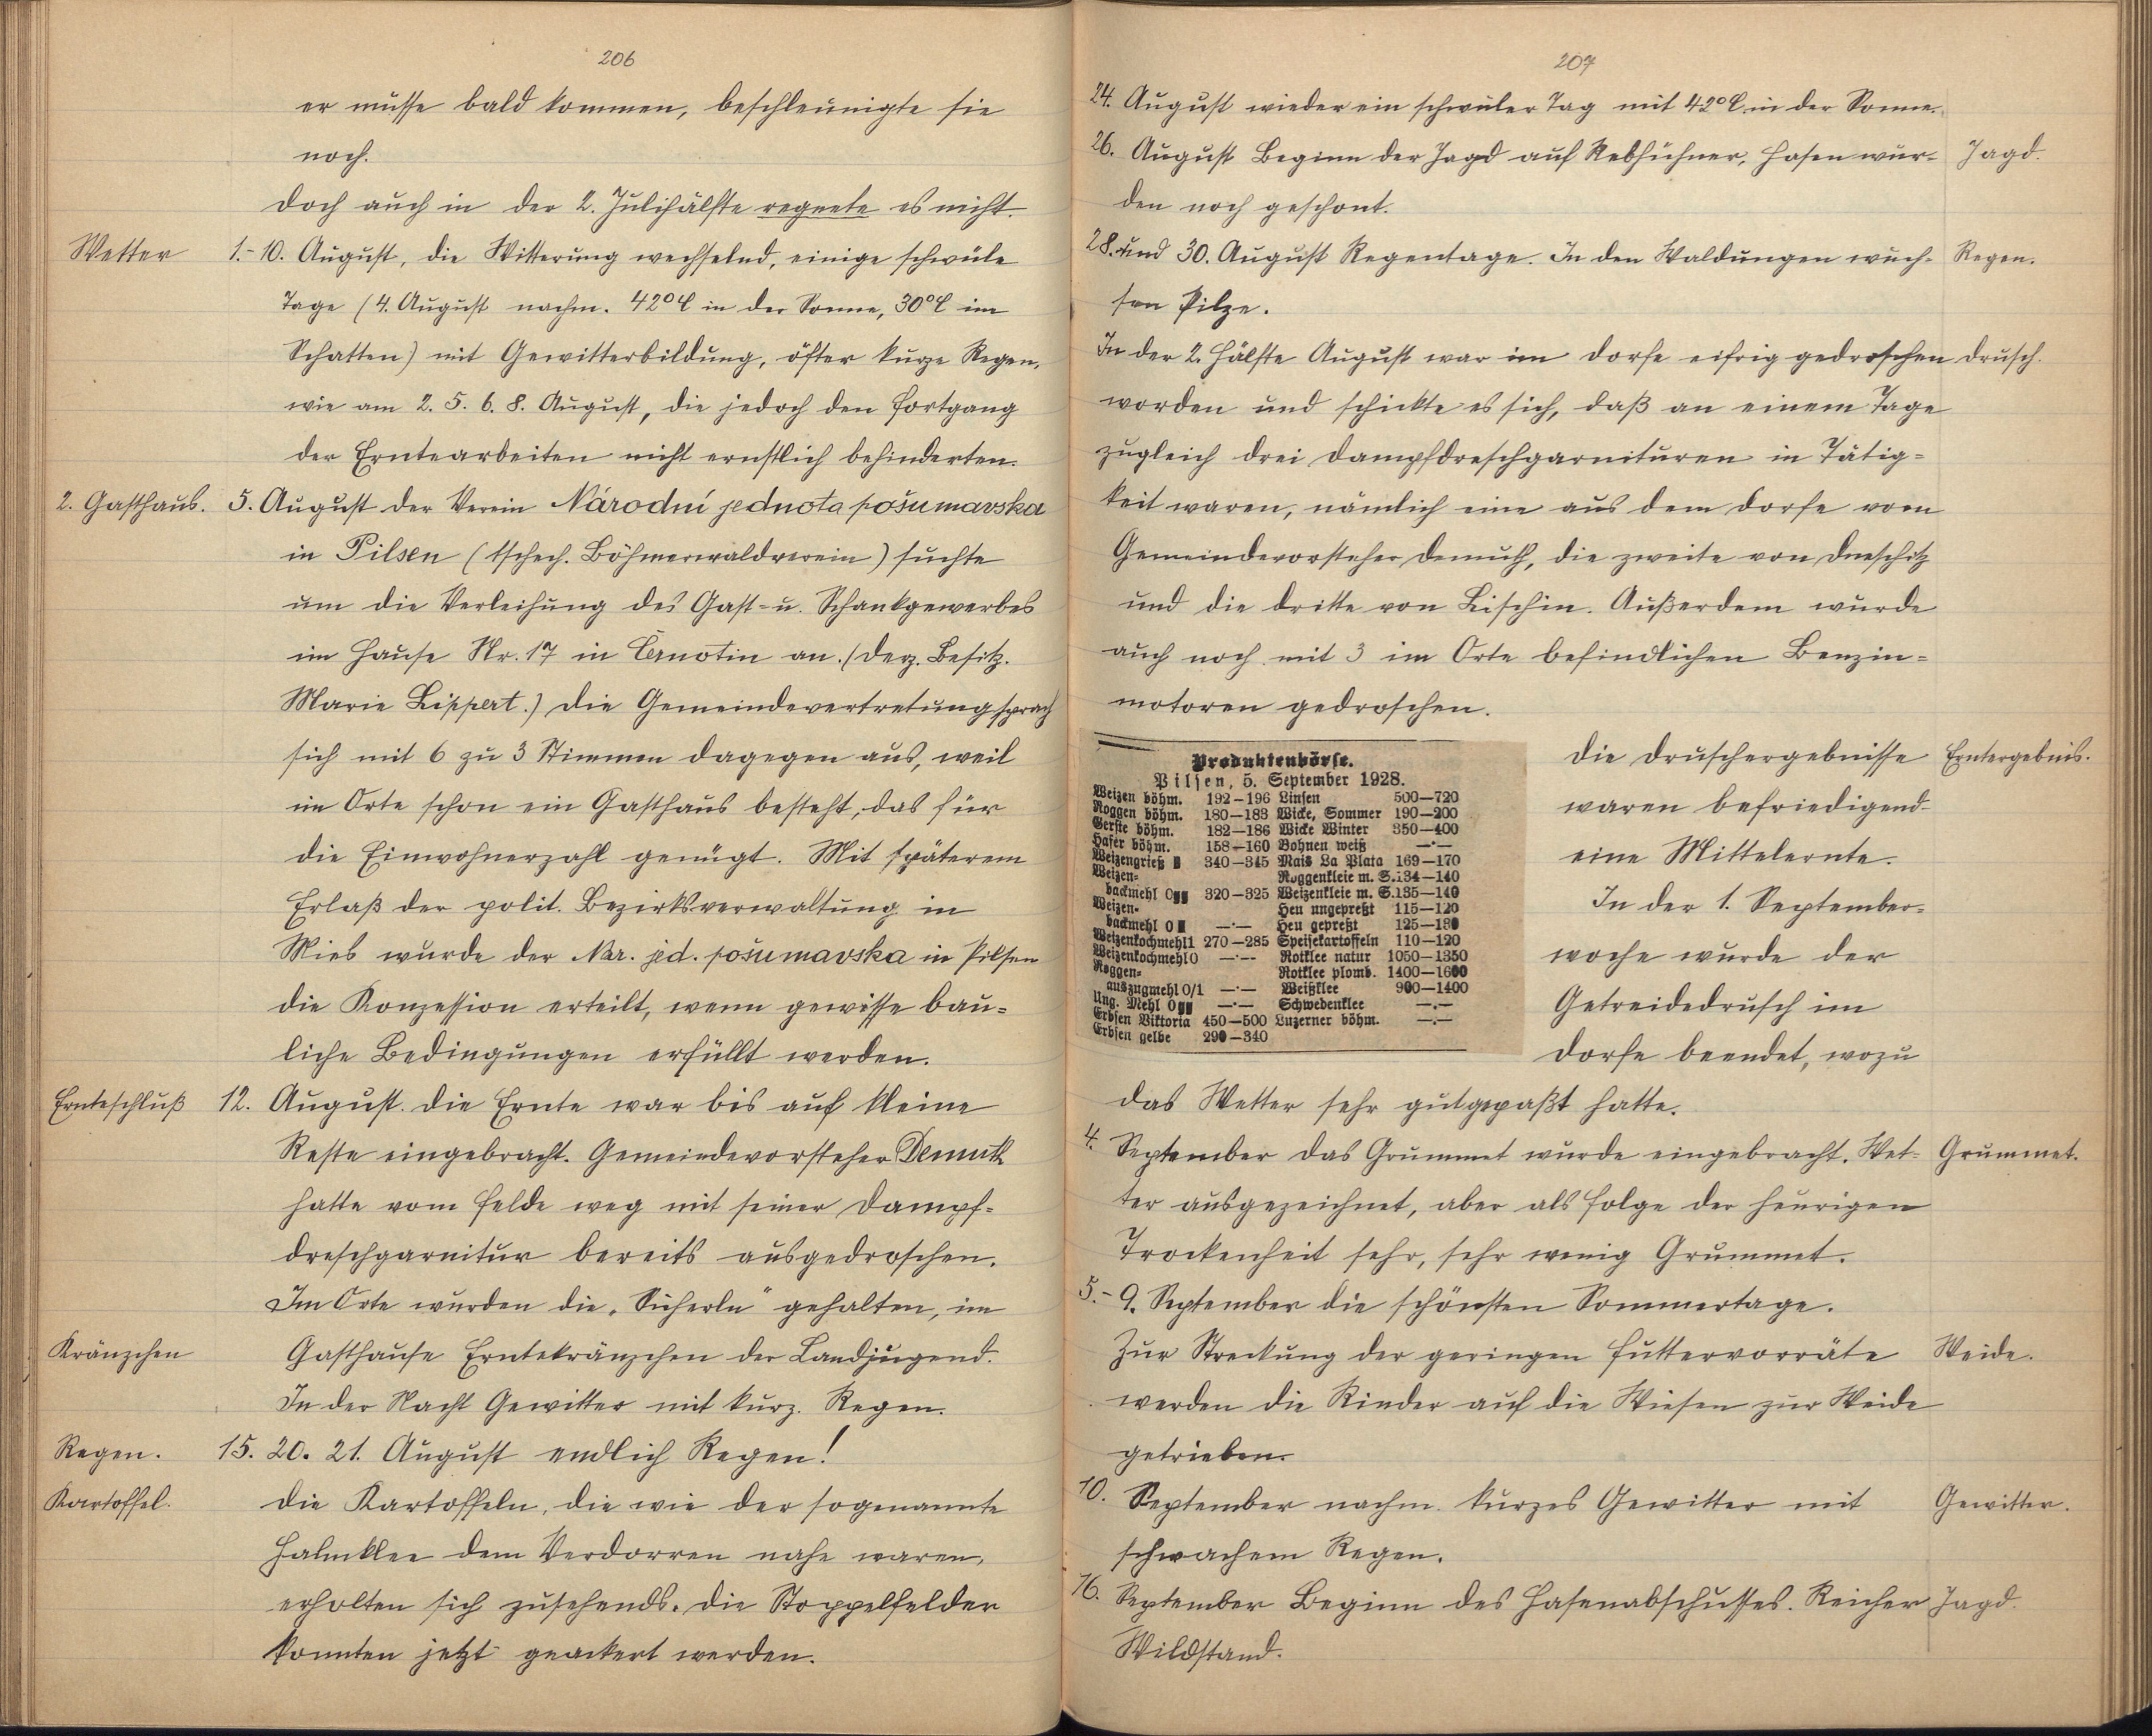 206
er müsse bald kommen, beschleunigte sie
noch.
Doch auch in der 2. Julihälfte regnete es nicht.
Wetter 1.-10. August, die Witterung wechselnd, einige schwüle
Tage (4. August nachm. 42°C in der Sonne, 30°C im
Schatten) mit Gewitterbildung, öfter kurze Regen,
wie am 2. 5. 6. 8. August, die jedoch den Fortgang
der Erntearbeiten nicht ernstlich behinderten.
2. Gasthaus. 5. August der Verein Národní jednota pošumavska
in Pilsen (tschech. Böhmerwaldverein) suchte
um die Verleihung des Gast- u. Schankgewerbes
im Hause Nr. 17 in Černotin an. (Derz. Besitz.
Marie Lippert.) Die Gemeindevertretung sprach
sich mit 6 zu 3 Stimmen dagegen aus, weil
im Orte schon ein Gasthaus besteht, das für
die Einwohnerzahl genügt. Mit späterem
Erlaß der polit. Bezirksverwaltung in
Mies wurde der Nár. jed. pošumavska in Pilsen
die Konzession erteilt, wenn gewisse bau-
liche Bedingungen erfüllt werden.
Ernteschluß 12. August. Die Ernte war bis auf kleine
Reste eingebracht. Gemeindevorsteher Demuth
hatte vom Felde weg mit seiner Dampf-
dreschgarnitur bereits ausgedroschen.
Im Orte wurden die „Sicherln" gehalten, im
Kränzchen Gasthause Erntekränzchen der Landjugend.
In der Nacht Gewitter mit kurz. Regen.
Regen. 15. 20. 21. August endlich Regen!
Kartoffel. Die Kartoffeln, die wie der sogenannte
Halmklee dem Verdorren nahe waren,
erholten sich zusehends. Die Stoppelfelder
konnten jetzt geackert werden.
207
24. August wieder ein schwüler Tag mit 42°C in der Sonne.
26. August Beginn der Jagd auf Rebhühner, Hasen wur- Jagd.
den noch geschont.
28. und 30. August Regentage. In den Waldungen wuch- Regen.
sen Pilze.
In der 2. Hälfte August war im Dorfe eifrig gedroschen Drusch.
worden und schickte es sich, daß an einem Tage
zugleich drei Dampfdreschgarnituren in Tätig-
keit waren, nämlich eine aus dem Dorfe vom
Gemeindevorsteher Demuth, die zweite von Dneschitz
und die dritte von Lischin. Außerdem wurde
auch noch mit 3 im Orte befindlichen Benzin-
motoren gedroschen.
Produktenbörse.
Pilsen, 5. September 1928.
Weizen böhm. 192–196 Linsen 500–720
Roggen böhm. 180–183 Wicke, Sommer 190–200
Gerste böhm. 182–186 Wicke Winter 350–400
Hafer böhm. 158–160 Bohnen weiß —·—
Weizengrieß 340–345 Mais La Plata 169–170
Weizen- Roggenkleie m. S. 134–140
backmehl 0gg 320–325 Weizenkleie m. S. 135–140
Weizen- Heu ungepreßt 115–120
backmehl 0 —·— Heu gepreßt 125–130
Weizenkochmehl 1 270–285 Speisekartoffeln 110–120
Weizenkochmehl 0 —·— Rotklee natur 1050–1350
Roggen- Rotklee plomb. 1400–1600
auszugmehl 0/1 —·— Weißklee 900–1400
Ung. Mehl 0gg —·— Schwedenklee —·—
Erbsen Viktoria 450–500 Luzerner böhm. —·—
Erbsen gelbe 290–340
Die Druschergebnisse Erntergebnis.
waren befriedigend -
eine Mittelernte.
In der 1. September-
woche wurde der
Getreidedrusch im
Dorfe beendet, wozu
das Wetter sehr gut gepaßt hatte.
4. September das Grummet wurde eingebracht. Wet- Grummet.
ter ausgezeichnet, aber als Folge der heurigen
Trockenheit sehr, sehr wenig Grummet.
5.- 9. September die schönsten Sommertage.
Zur Streckung der geringen Futtervorräte Weide.
werden die Rinder auf die Wiesen zur Weide
getrieben.
10. September nachm. kurzes Gewitter mit Gewitter.
schwachem Regen.
16. September Beginn des Hasenabschusses. Reicher Jagd.
Wildstand.